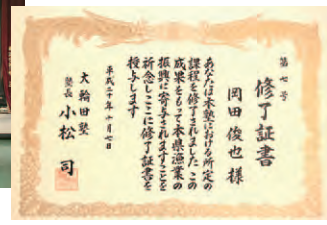 第七号
修了証書
岡田俊也様
あなたは本塾における所定の
課程を修了されました この
成果をもって本県漁業の
振興に寄与されますことを
祈念しここに修了証書を
授与します
平成二十年十月七日
大輪田塾
塾長 小松司